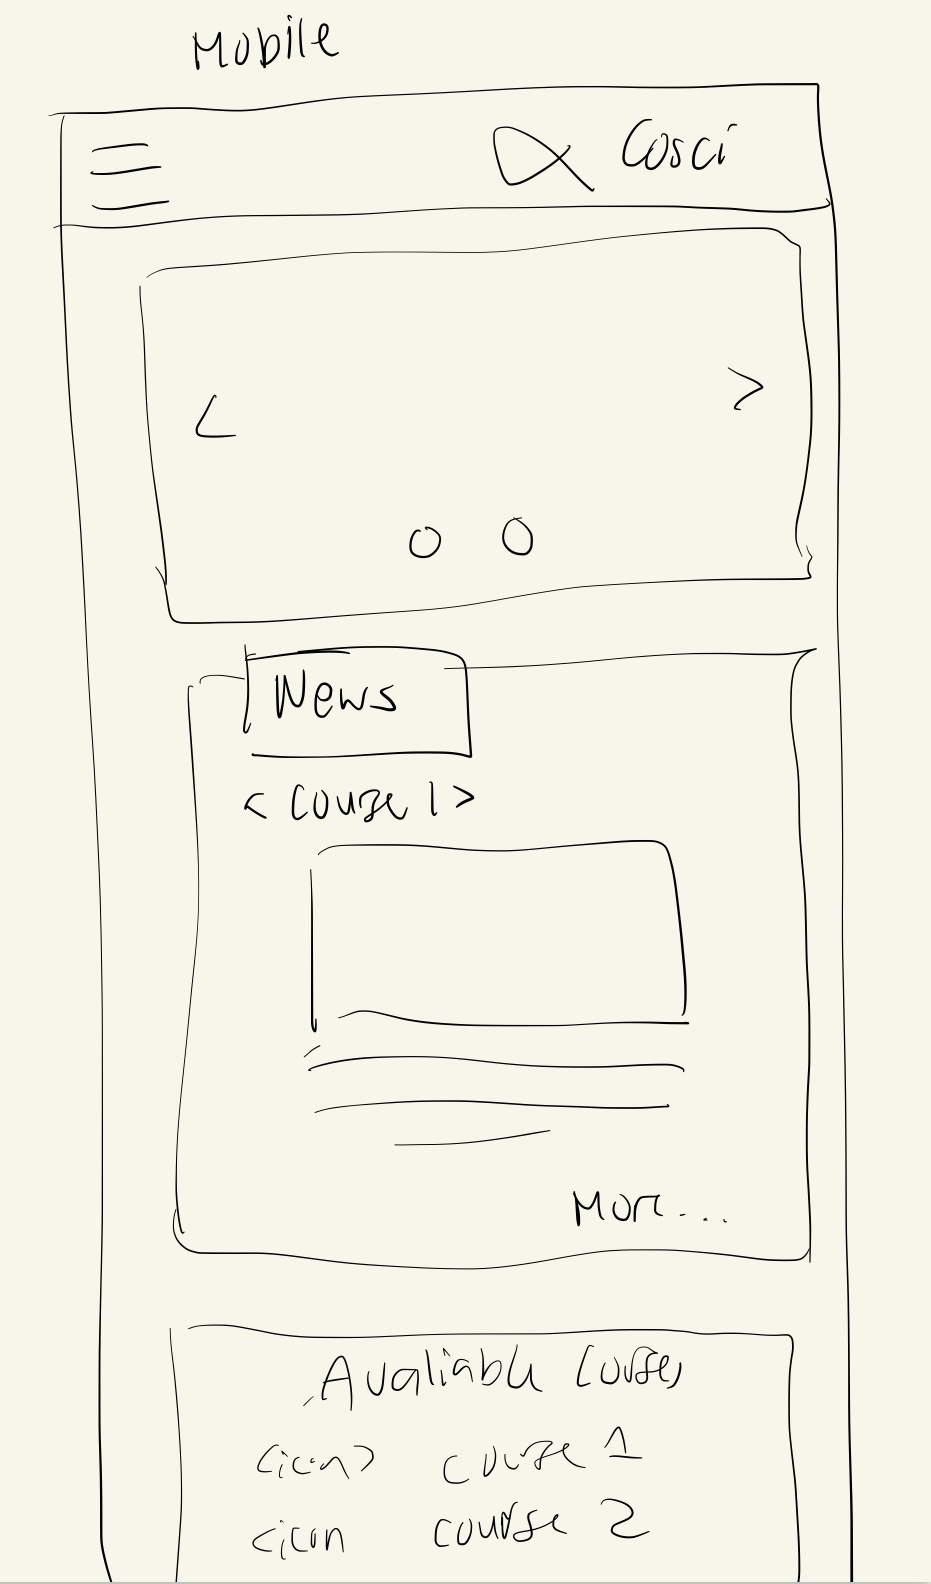 Mobile
Cosci
< >
News
< Course 1 >
More...
Avaliable Courses
<icon> course 1
<icon course 2